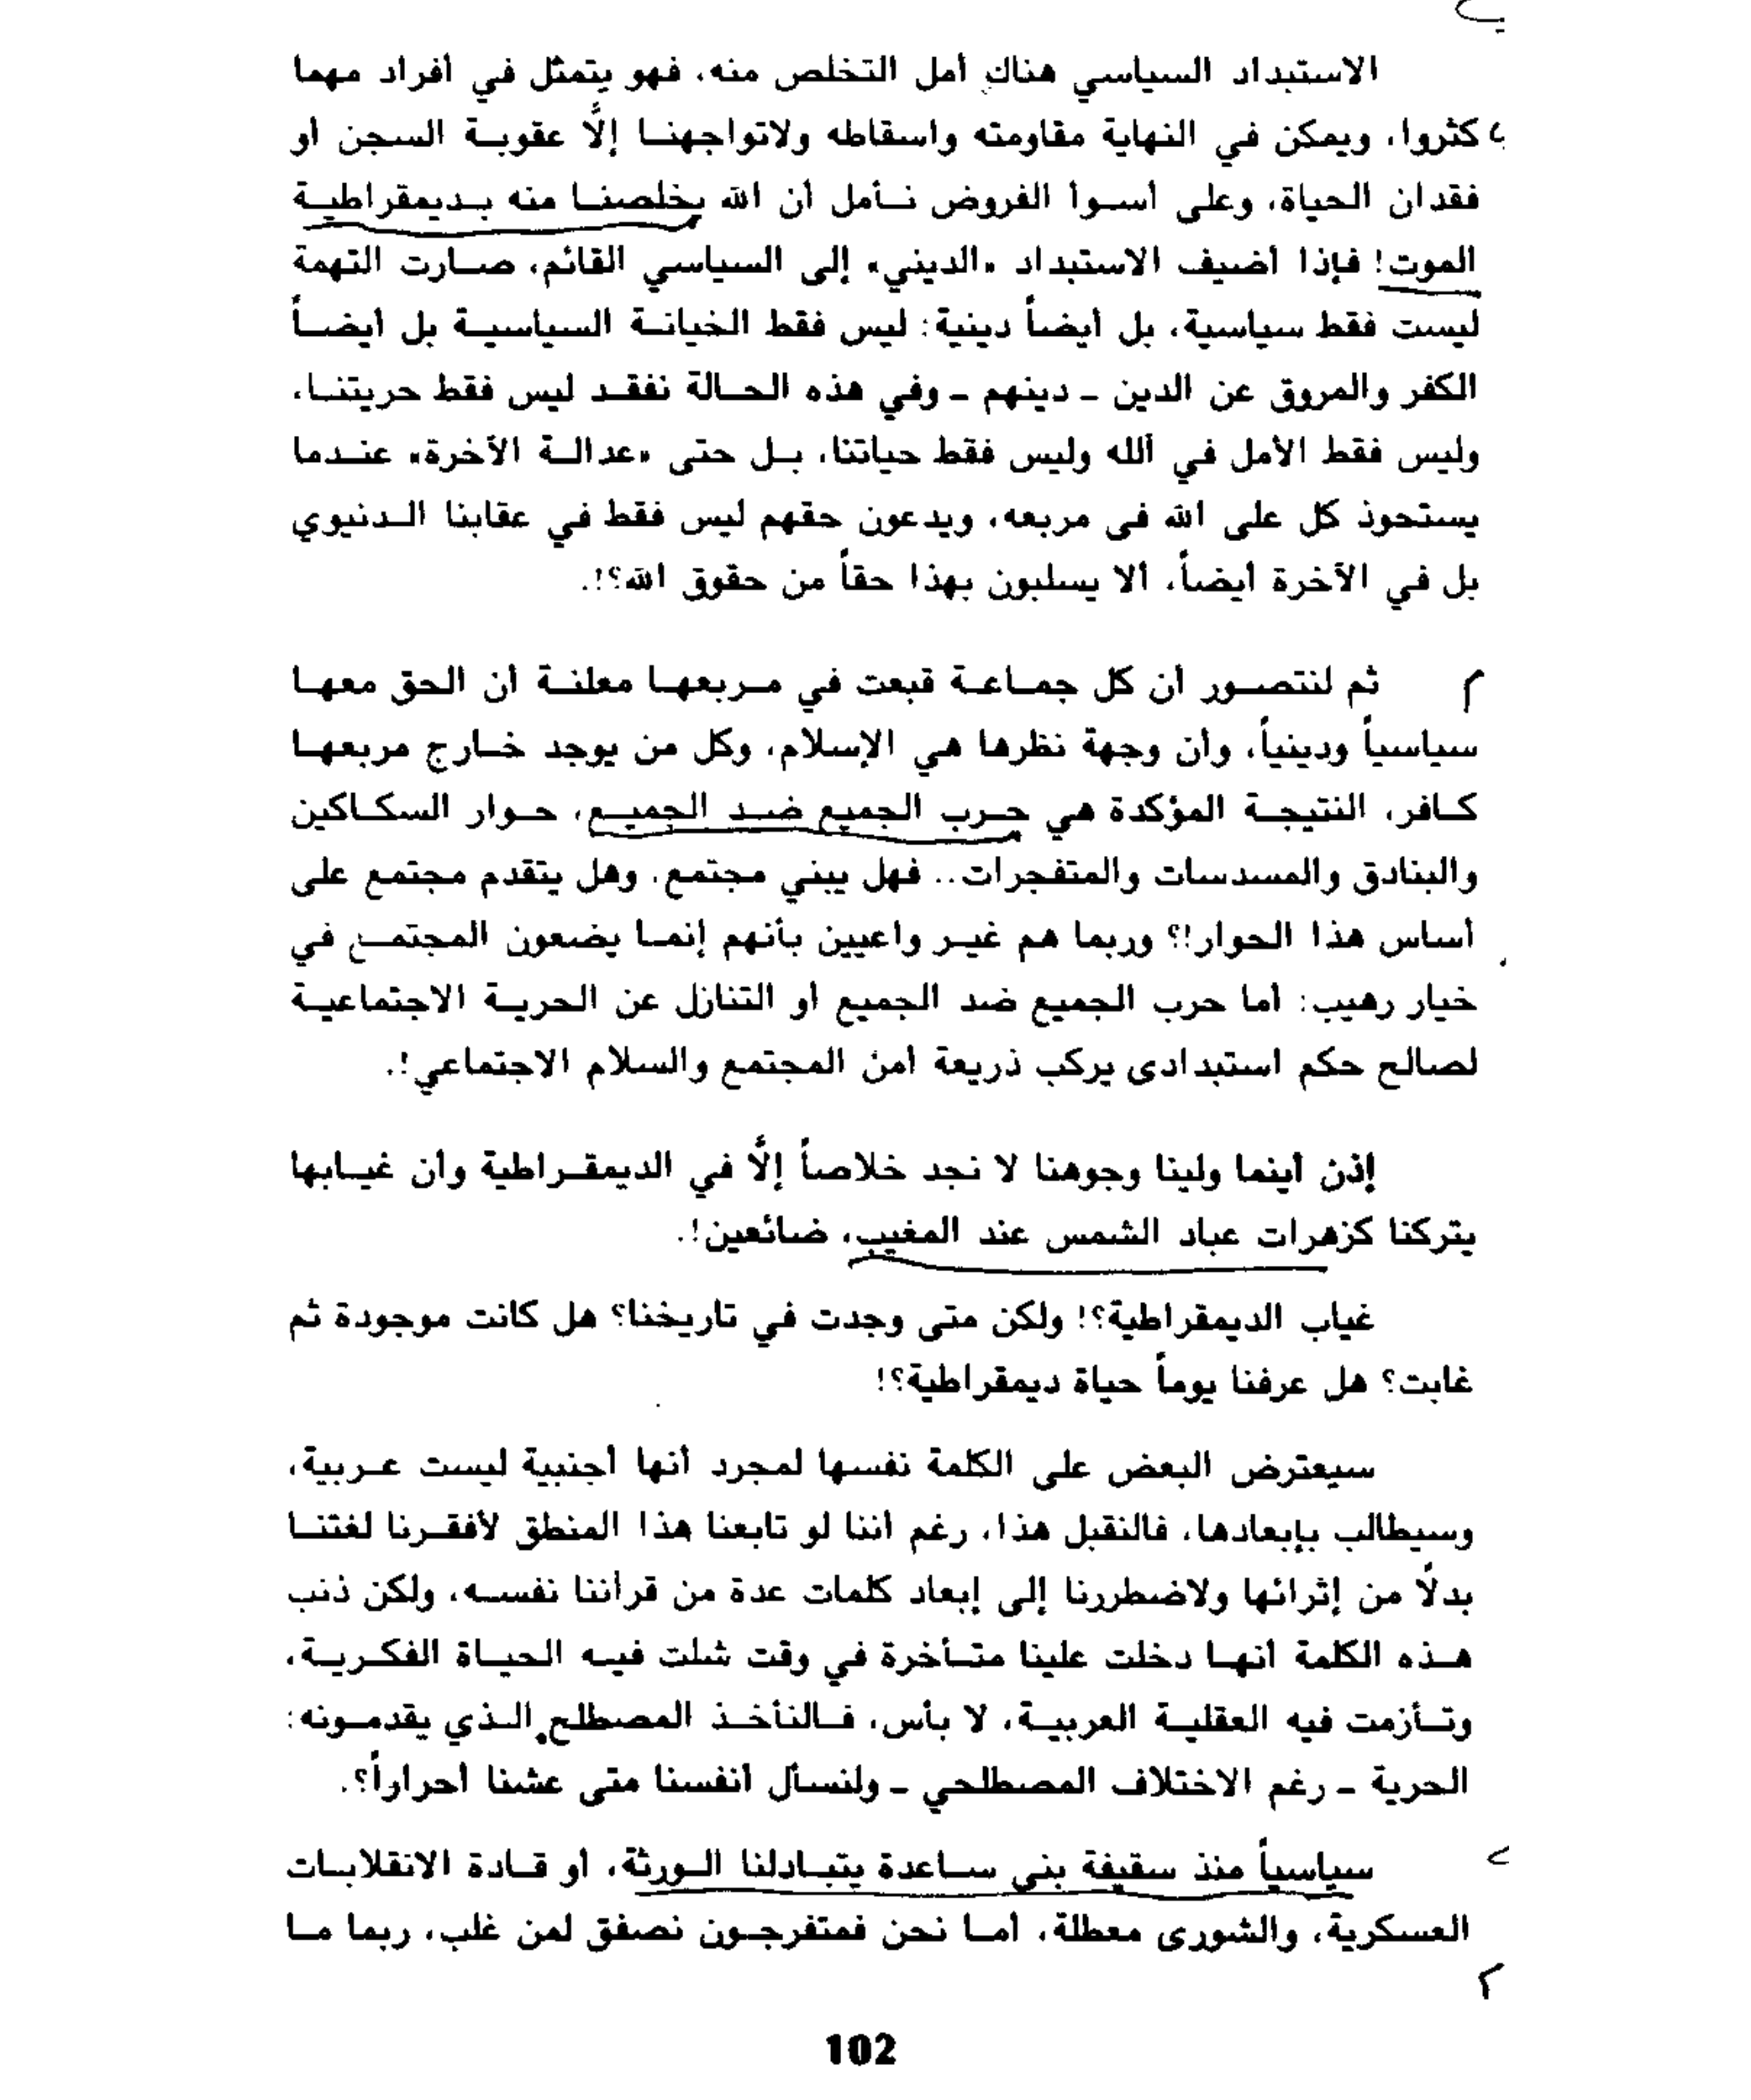 الاستبداد السياسي هناك أمل التخلص منه، فهو يتمثل في أفراد مهما
كثروا، ويمكن في النهاية مقاومته واسقاطه ولاتواجهنا إلاَّ عقوبة السجن أو
فقدان الحياة، وعلى أسوأ الفروض نأمل أن الله يخلصنا منه بديمقراطية
الموت! فإذا أضيف الاستبداد «الديني» إلى السياسي القائم، صارت التهمة
ليست فقط سياسية، بل أيضاً دينية: ليس فقط الخيانة السياسية بل أيضاً
الكفر والمروق عن الدين ـ دينهم ـ وفي هذه الحالة نفقد ليس فقط حريتنا،
وليس فقط الأمل في ألله وليس فقط حياتنا، بل حتى «عدالة الآخرة» عندما
يستحوذ كل على الله فى مربعه، ويدعون حقهم ليس فقط في عقابنا الدنيوي
بل في الآخرة أيضاً، ألا يسلبون بهذا حقاً من حقوق الله؟!.
ثم لنتصور أن كل جماعة قبعت في مربعها معلنة أن الحق معها
سياسياً ودينياً، وأن وجهة نظرها هي الإسلام، وكل من يوجد خارج مربعها
كافر، النتيجة المؤكدة هي حرب الجميع ضد الجميع، حوار السكاكين
والبنادق والمسدسات والمتفجرات.. فهل يبني مجتمع، وهل يتقدم مجتمع على
أساس هذا الحوار!؟ وربما هم غير واعيين بأنهم إنما يضعون المجتمع في
خيار رهيب: أما حرب الجميع ضد الجميع أو التنازل عن الحرية الاجتماعية
لصالح حكم استبدادى يركب ذريعة أمن المجتمع والسلام الاجتماعي!.
إذن أينما ولينا وجوهنا لا نجد خلاصاً إلاَّ في الديمقراطية وأن غيابها
يتركنا كزهرات عباد الشمس عند المغيب، ضائعين!.
غياب الديمقراطية؟! ولكن متى وجدت في تاريخنا؟ هل كانت موجودة ثم
غابت؟ هل عرفنا يوماً حياة ديمقراطية؟!
سيعترض البعض على الكلمة نفسها لمجرد أنها أجنبية ليست عربية،
وسيطالب بإبعادها، فالنقبل هذا، رغم أننا لو تابعنا هذا المنطق لأفقرنا لغتنا
بدلًا من إثرائها ولاضطررنا إلى إبعاد كلمات عدة من قرأننا نفسه، ولكن ذنب
هذه الكلمة أنها دخلت علينا متأخرة في وقت شلت فيه الحياة الفكرية،
وتأزمت فيه العقلية العربية، لا بأس، فالنأخذ المصطلح الذي يقدمونه:
الحرية ـ رغم الاختلاف المصطلحي ـ ولنسأل أنفسنا متى عشنا أحراراً؟.
سياسياً منذ سقيفة بني ساعدة يتبادلنا الورثة، أو قادة الانقلابات
العسكرية، والشورى معطلة، أما نحن فمتفرجون نصفق لمن غلب، ربما ما
102